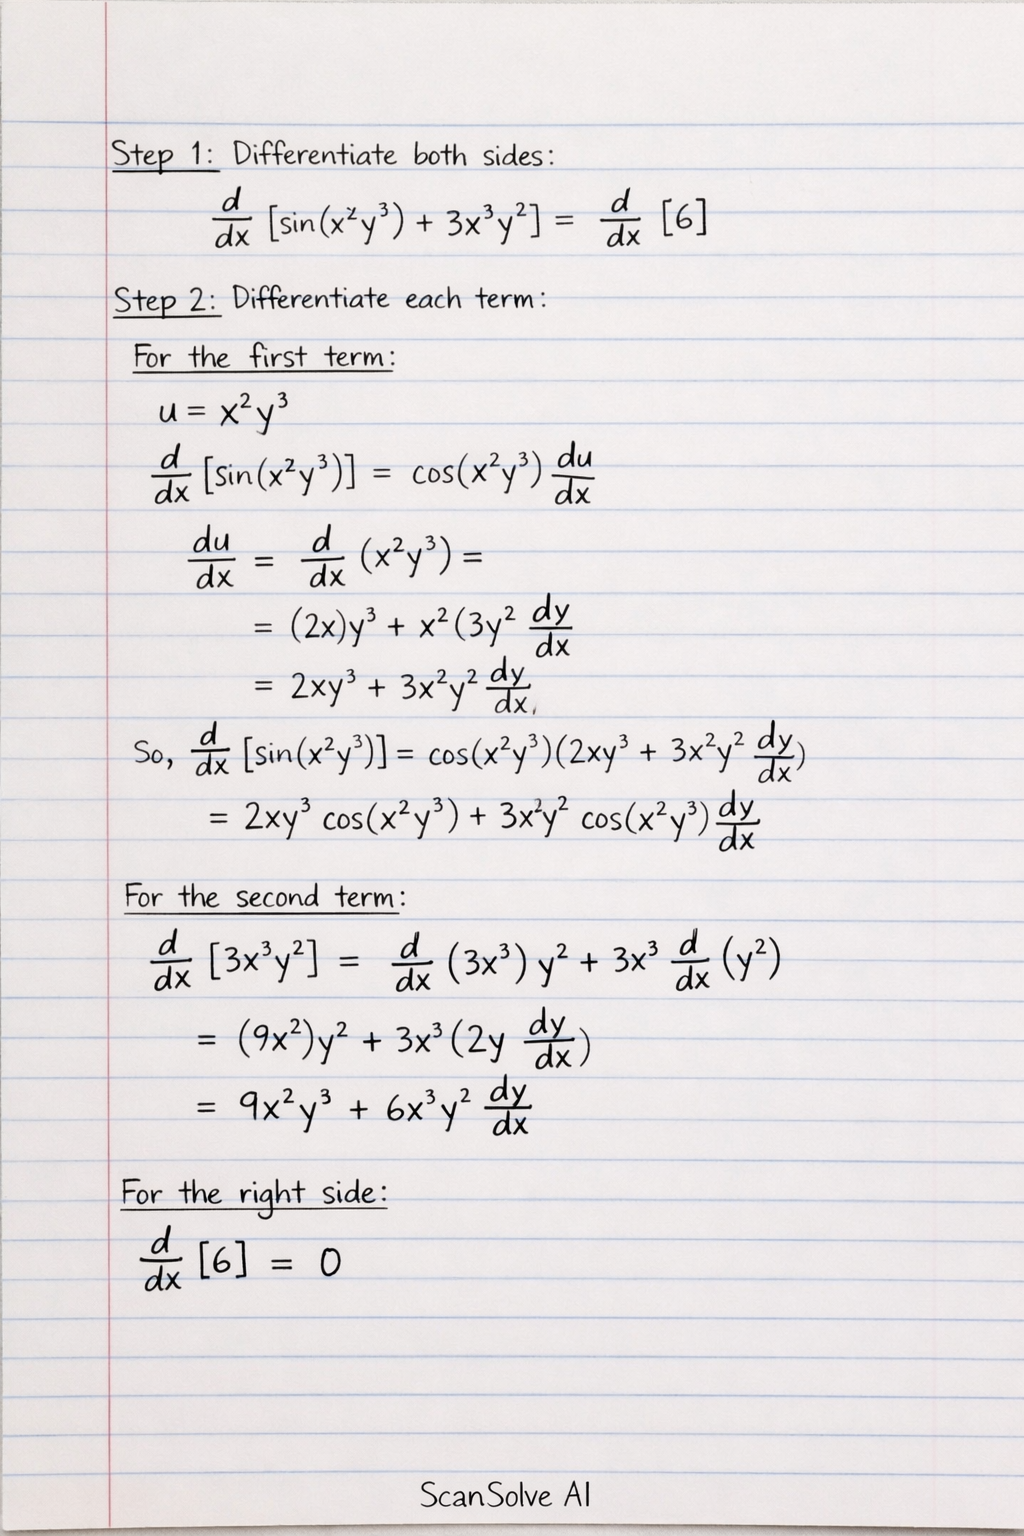 Step 1: Differentiate both sides:
d/dx [sin(x²y³) + 3x³y²] = d/dx [6]
Step 2: Differentiate each term:
For the first term:
u = x²y³
d/dx [sin(x²y³)] = cos(x²y³) du/dx
du/dx = d/dx (x²y³) =
= (2x)y³ + x²(3y² dy/dx
= 2xy³ + 3x²y² dy/dx,
So, d/dx [sin(x²y³)] = cos(x²y³)(2xy³ + 3x²y² dy/dx)
= 2xy³ cos(x²y³) + 3x²y² cos(x²y³) dy/dx
For the second term:
d/dx [3x³y²] = d/dx (3x³) y² + 3x³ d/dx (y²)
= (9x²)y² + 3x³(2y dy/dx)
= 9x²y³ + 6x³y² dy/dx
For the right side:
d/dx [6] = 0
ScanSolve AI